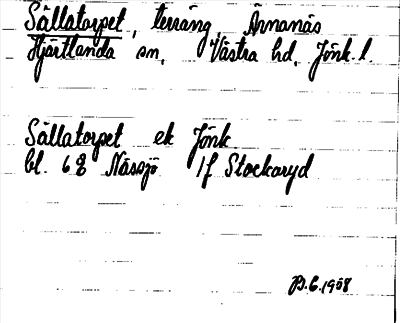 Sållatorpet, terräng, Ärnanäs
Hjärtlanda sn, Västra hd, Jönk. l.
Sållatorpet ek Jönk
bl. 6 g Nässjö 1f Stockaryd
1958